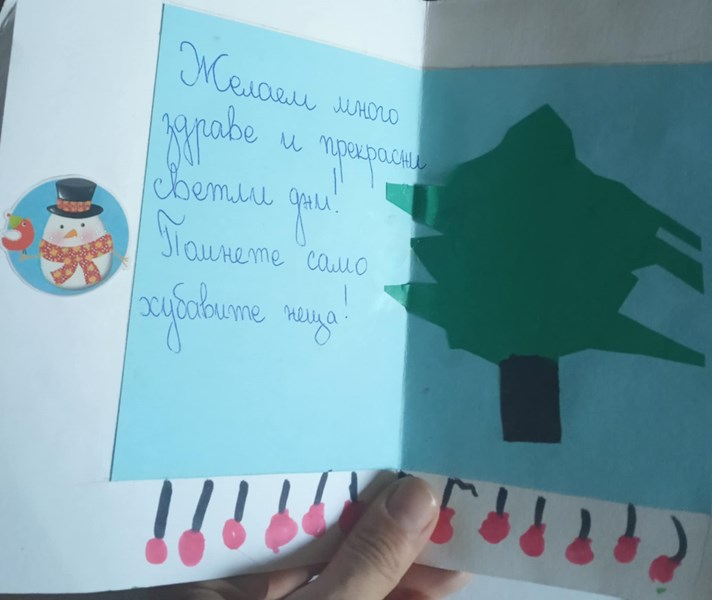 Желаем много
здраве и прекрасни
светли дни!
Помнете само
хубавите неща!